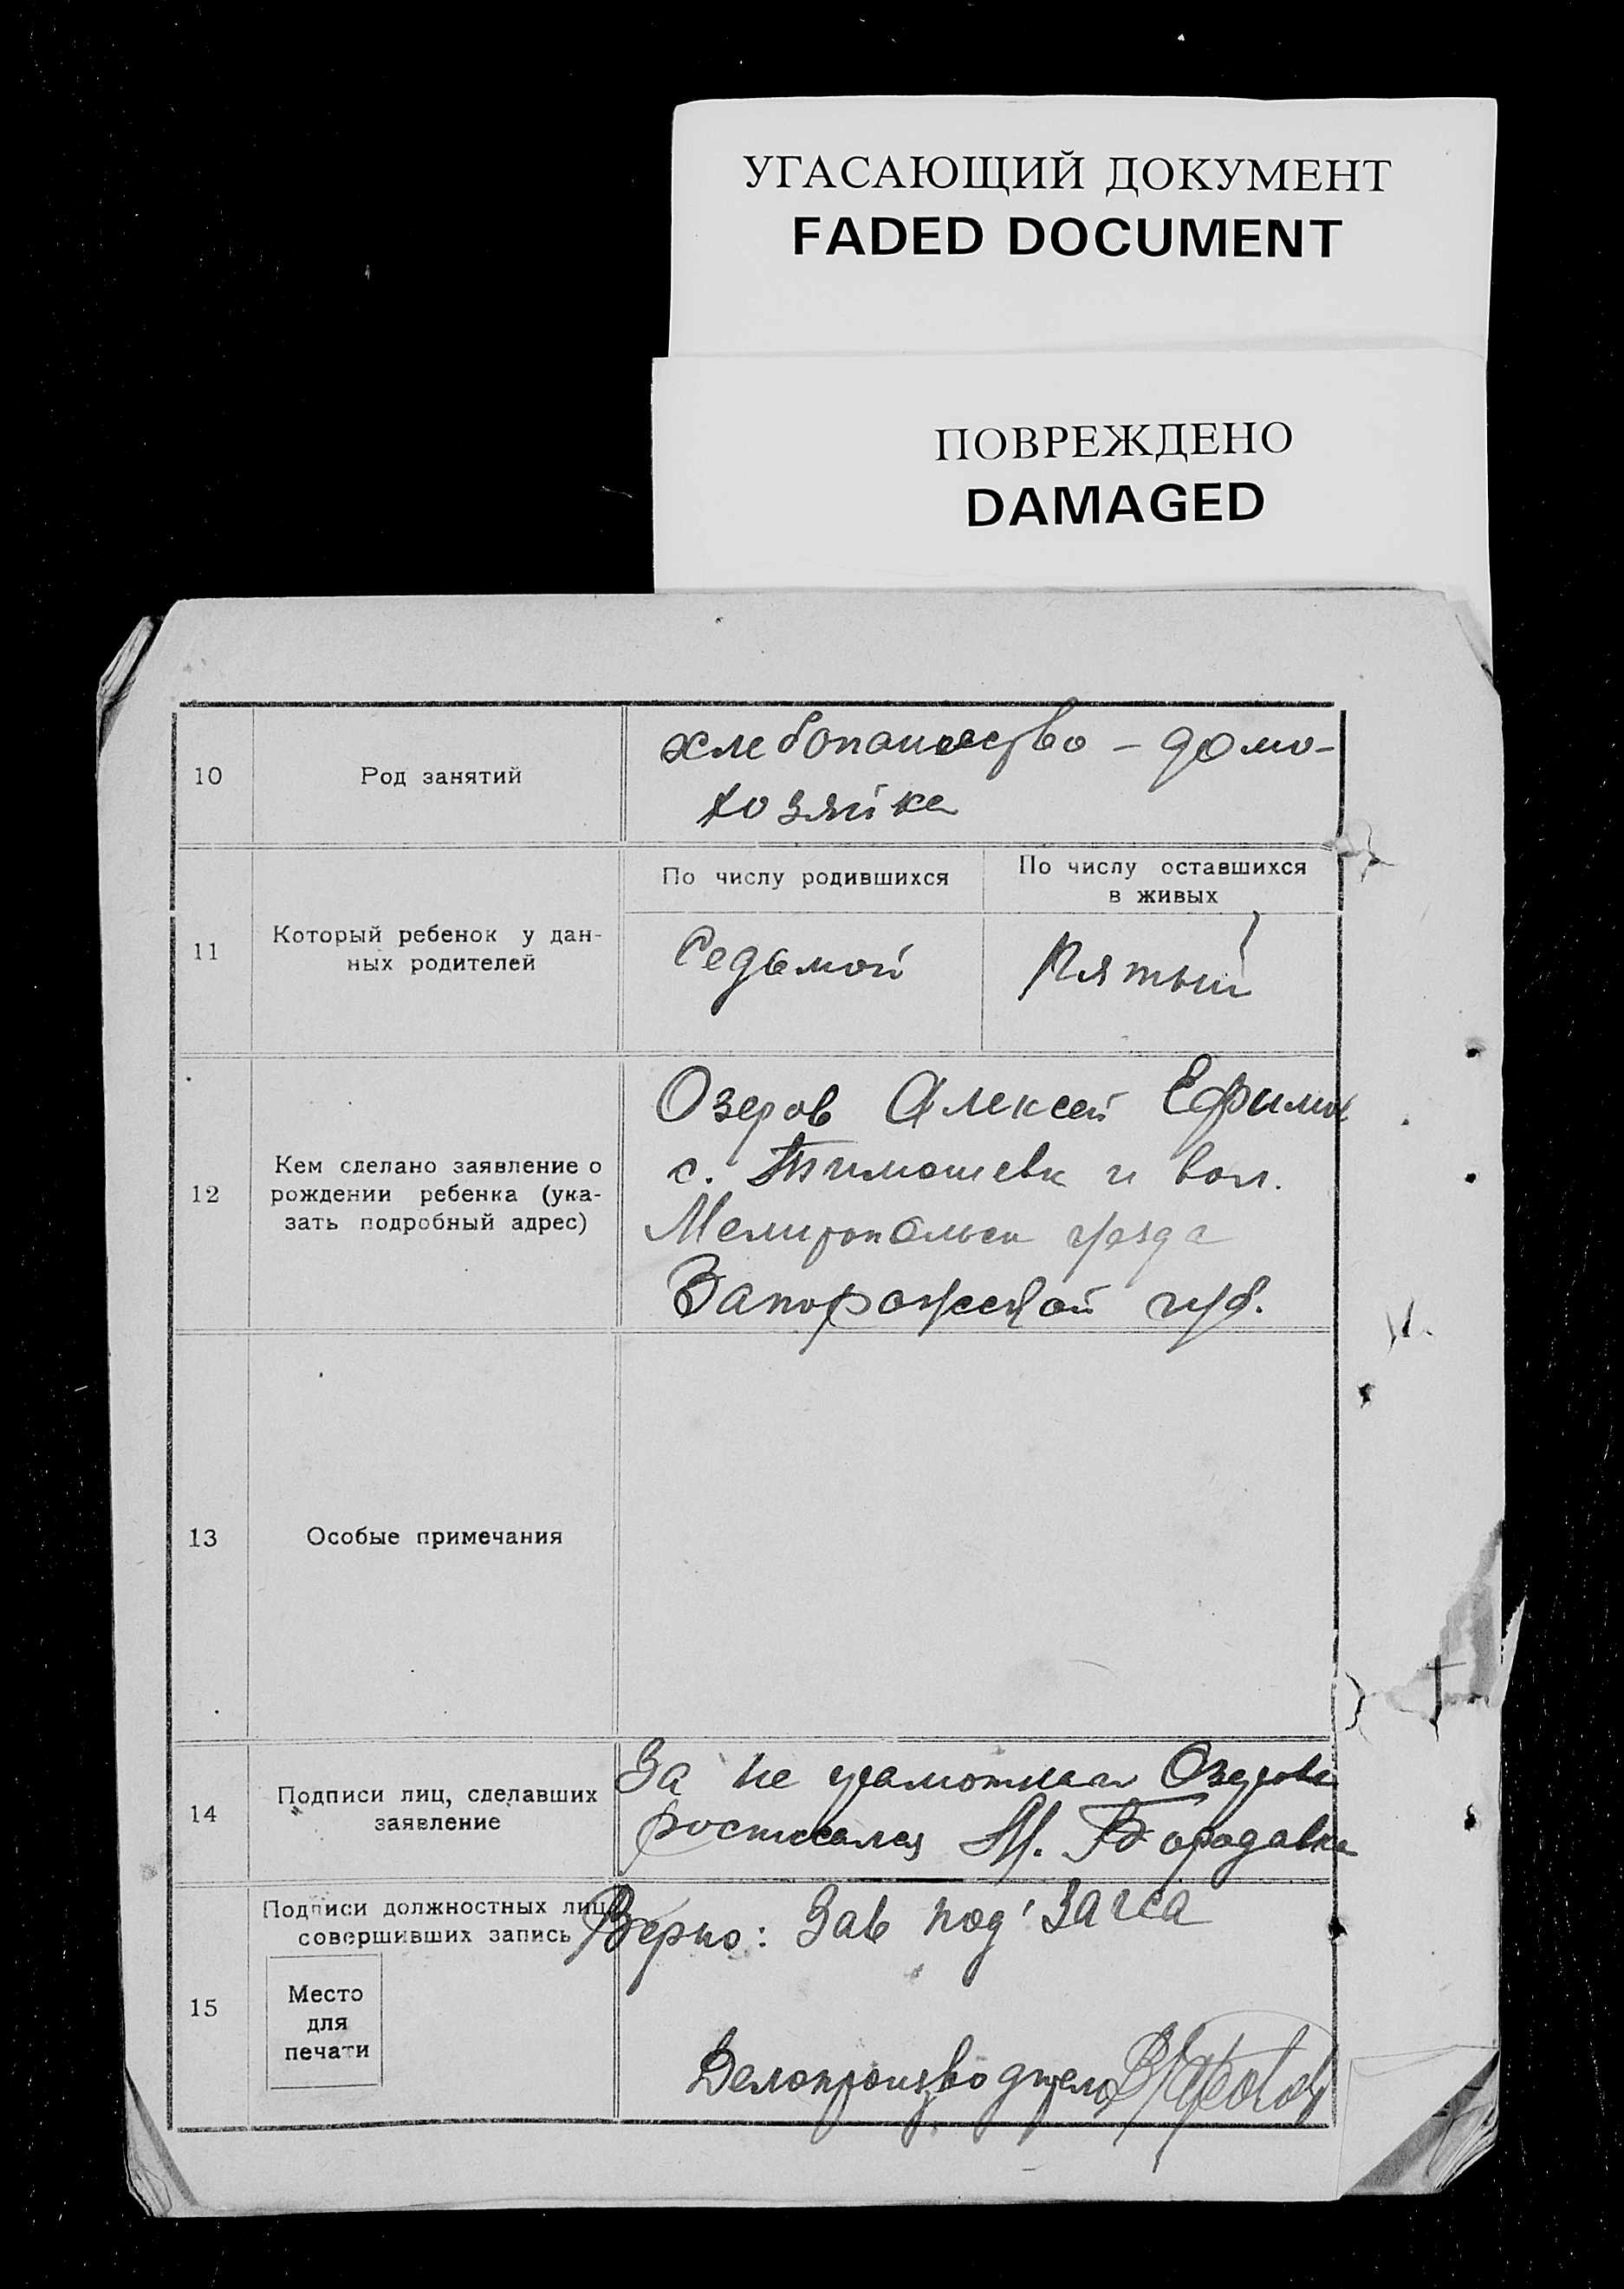 УГАСАЮЩИЙ ДОКУМЕНТ
FADED DOCUMENT
ПОВРЕЖДЕНО
DAMAGED
10
Род занятий
хлебопашество – домо-
хозяйка
11
Который ребенок у дан-
ных родителей
По числу родившихся
По числу оставшихся
в живых
Седьмой
Пятый
12
Кем сделано заявление о
рождении ребенка (ука-
зать подробный адрес)
Озеров Алексей Ефимов
с. Тимошевк и вол.
Мелитопольск уезда
Запорожской губ.
13
Особые примечания
14
Подписи лиц, сделавших
заявление
За не грамотная Озерова
М. Бородавка
15
Подписи должностных лиц
совершивших запись
Место
для
печати
Верно: Зав под' Загса
Делопроизводитель